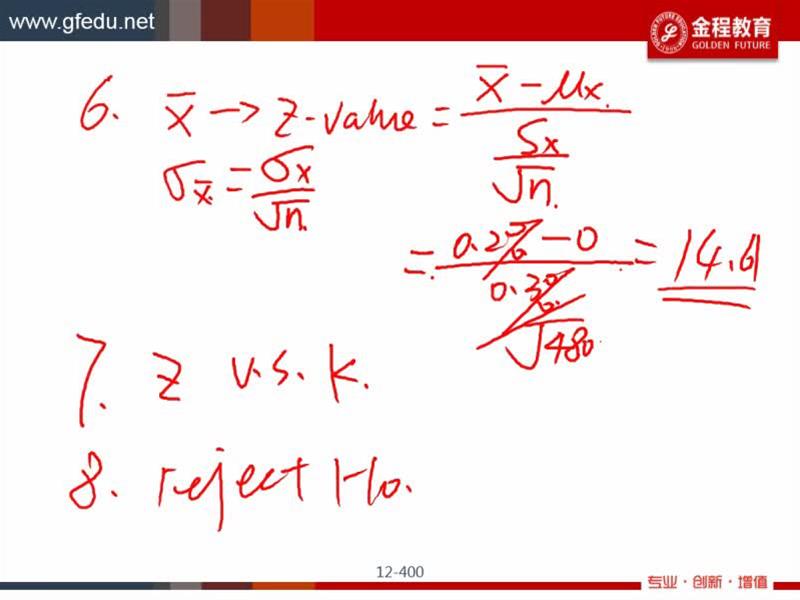 www.gfedu.net
金程教育
GOLDEN FUTURE
6. x̄ → z-value = (x̄ - μx) / (Sx / √n.)
σx̄ = σx / √n.
= (0.2% - 0) / (0.3% / √480) = 14.61
7. z v.s. k.
8. reject Ho.
12-400
专业·创新·增值